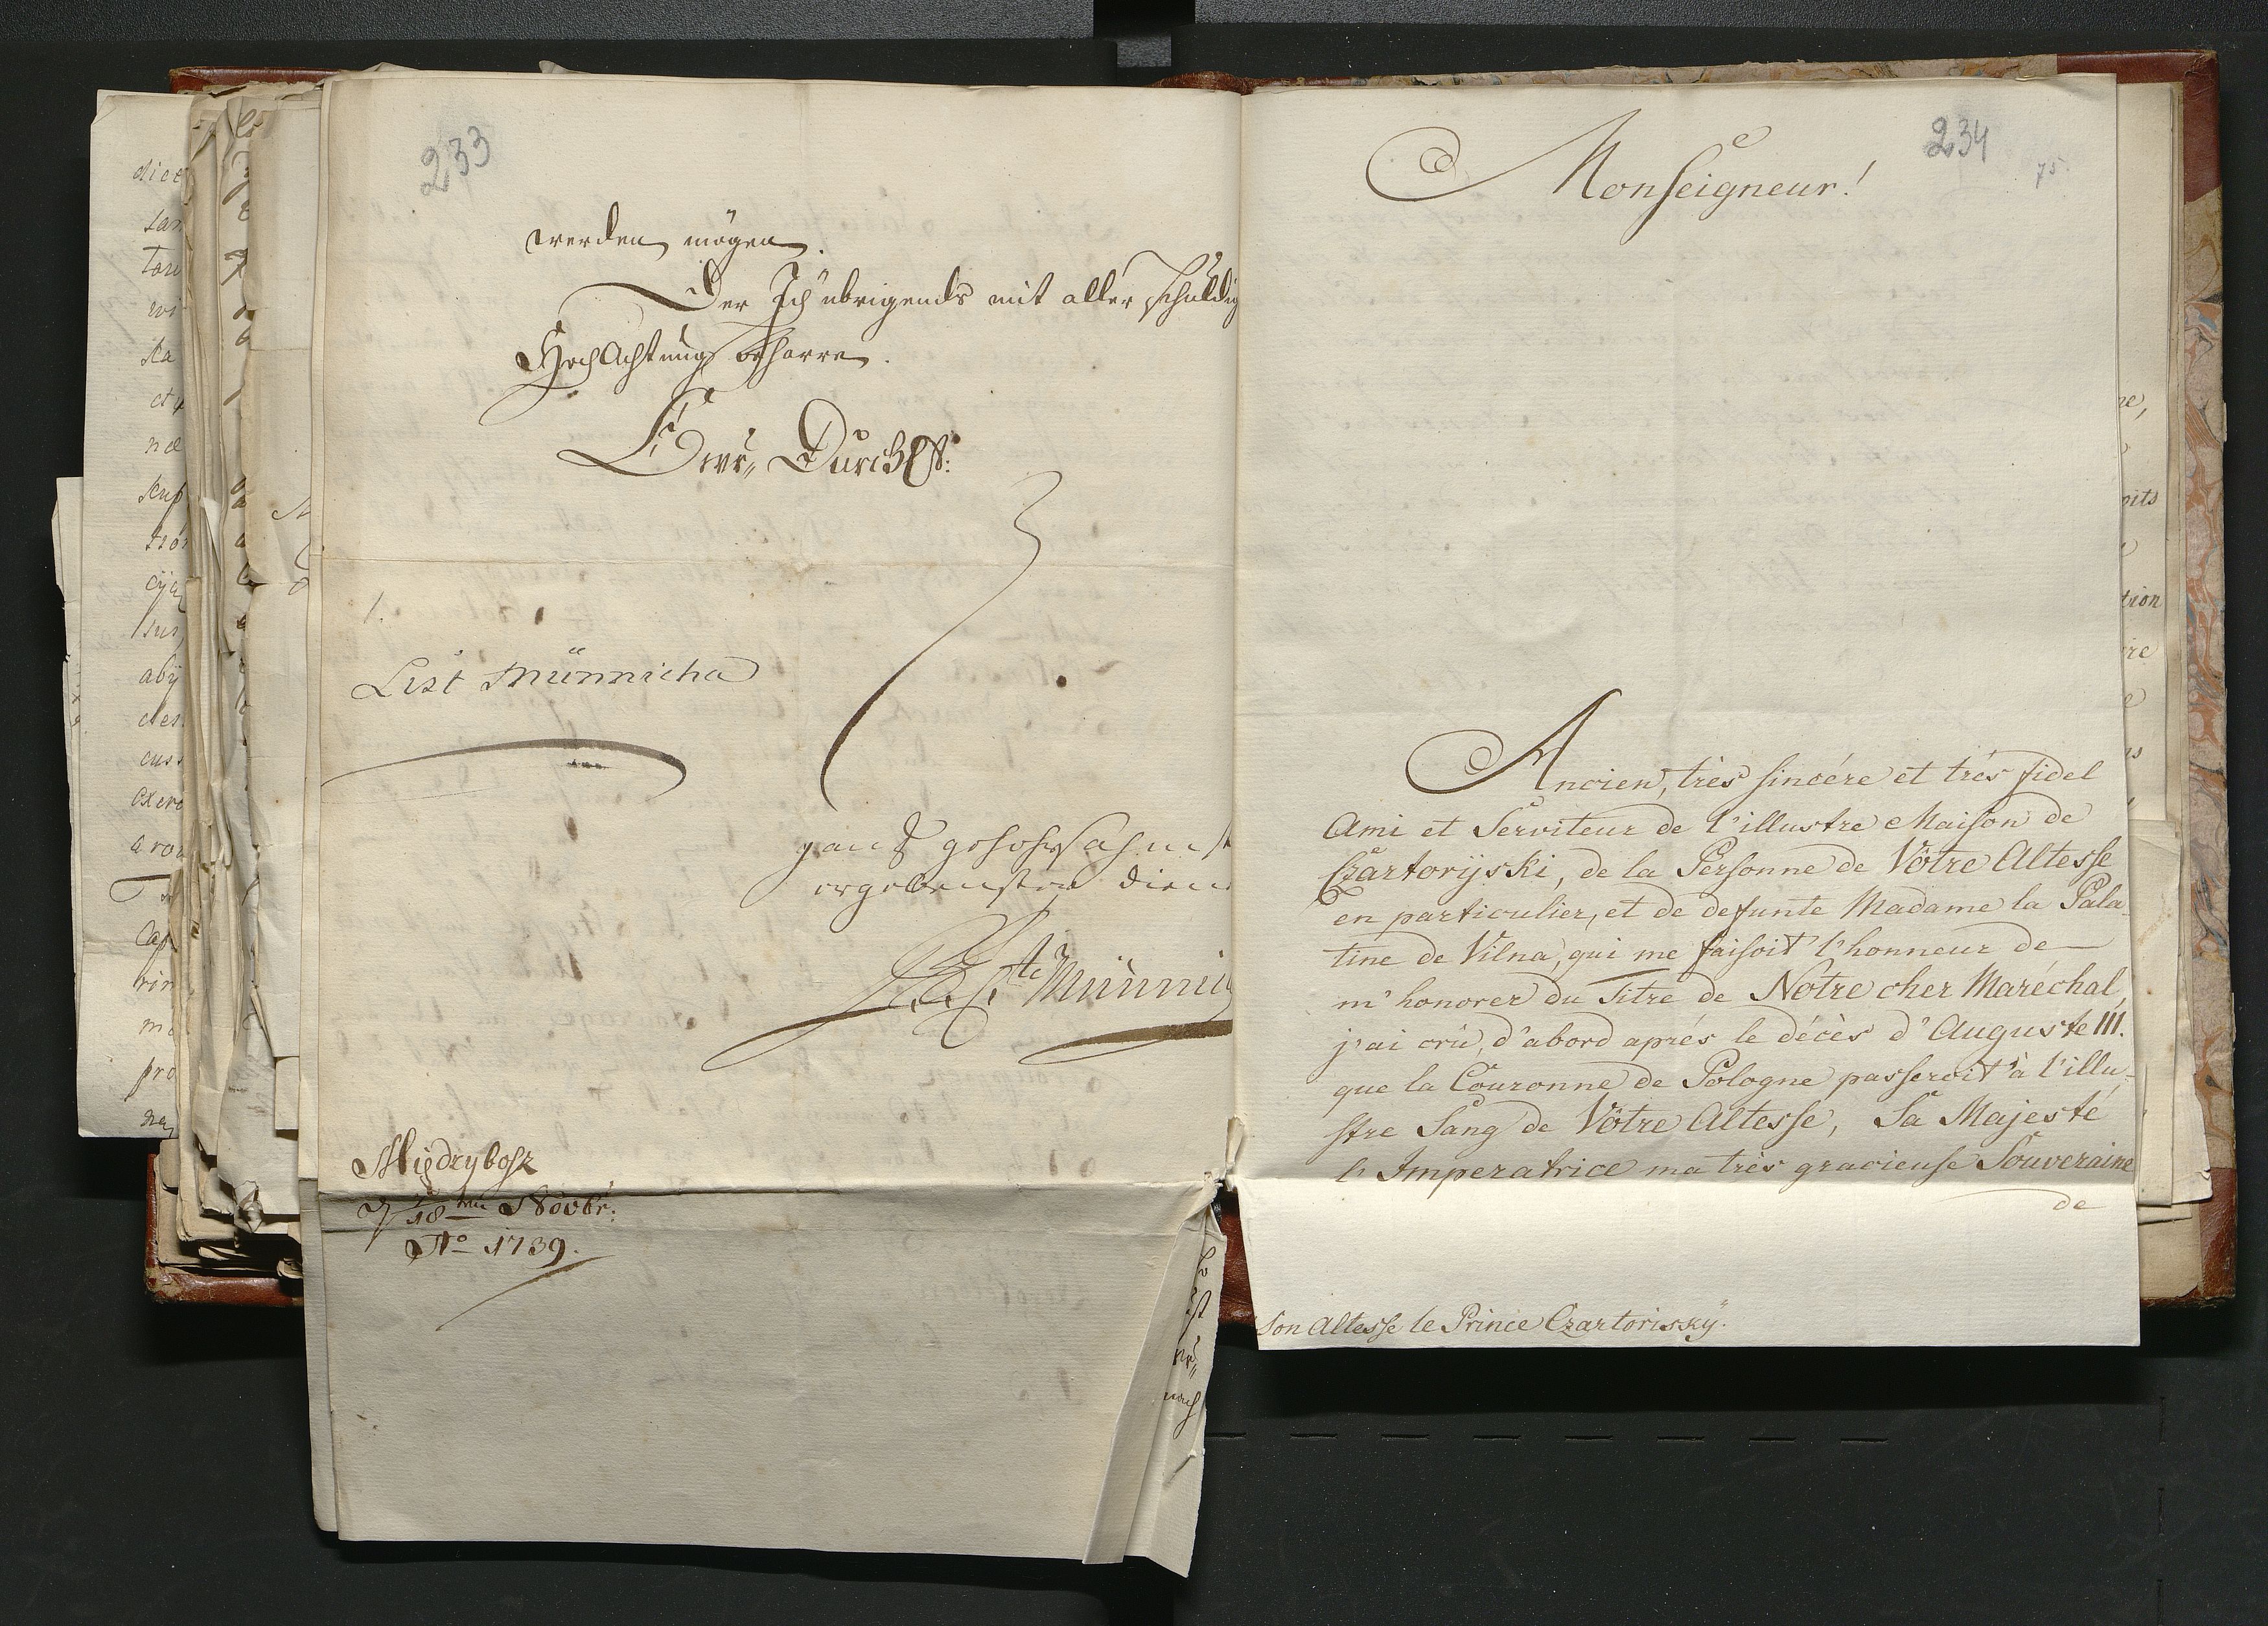 233
werden mögen.
Der Ich übrigends mit aller schuldig
HochAchtung beharre.
Ewr„ Durchl:
1.
List Münnicha
gantz gehohrsahmst
ergebenster dien
Münnich
Międzybosz
18 Novbr:
Ao 1739.
234
75.
Monseigneur!
Ancien, très sincére et trés fidel
Ami et Serviteur de l'illustre Maison de
Czartoryiski, de la Personne de Vôtre Altesse
en particulier, et de defunte Madame la Pala-
tine de Vilna, qui me faisoit l'honneur de
m'honorer du Titre de Notre cher Maréchal,
j'ai crû, d'abord aprés le décès d'Auguste III.
que la Couronne de Pologne passeroit à l'illu-
stre Sang de Vôtre Altesse, Sa Majesté
l'Imperatrice ma très gracieuse Souveraine
de
Son Altesse le Prince Czartorissky.